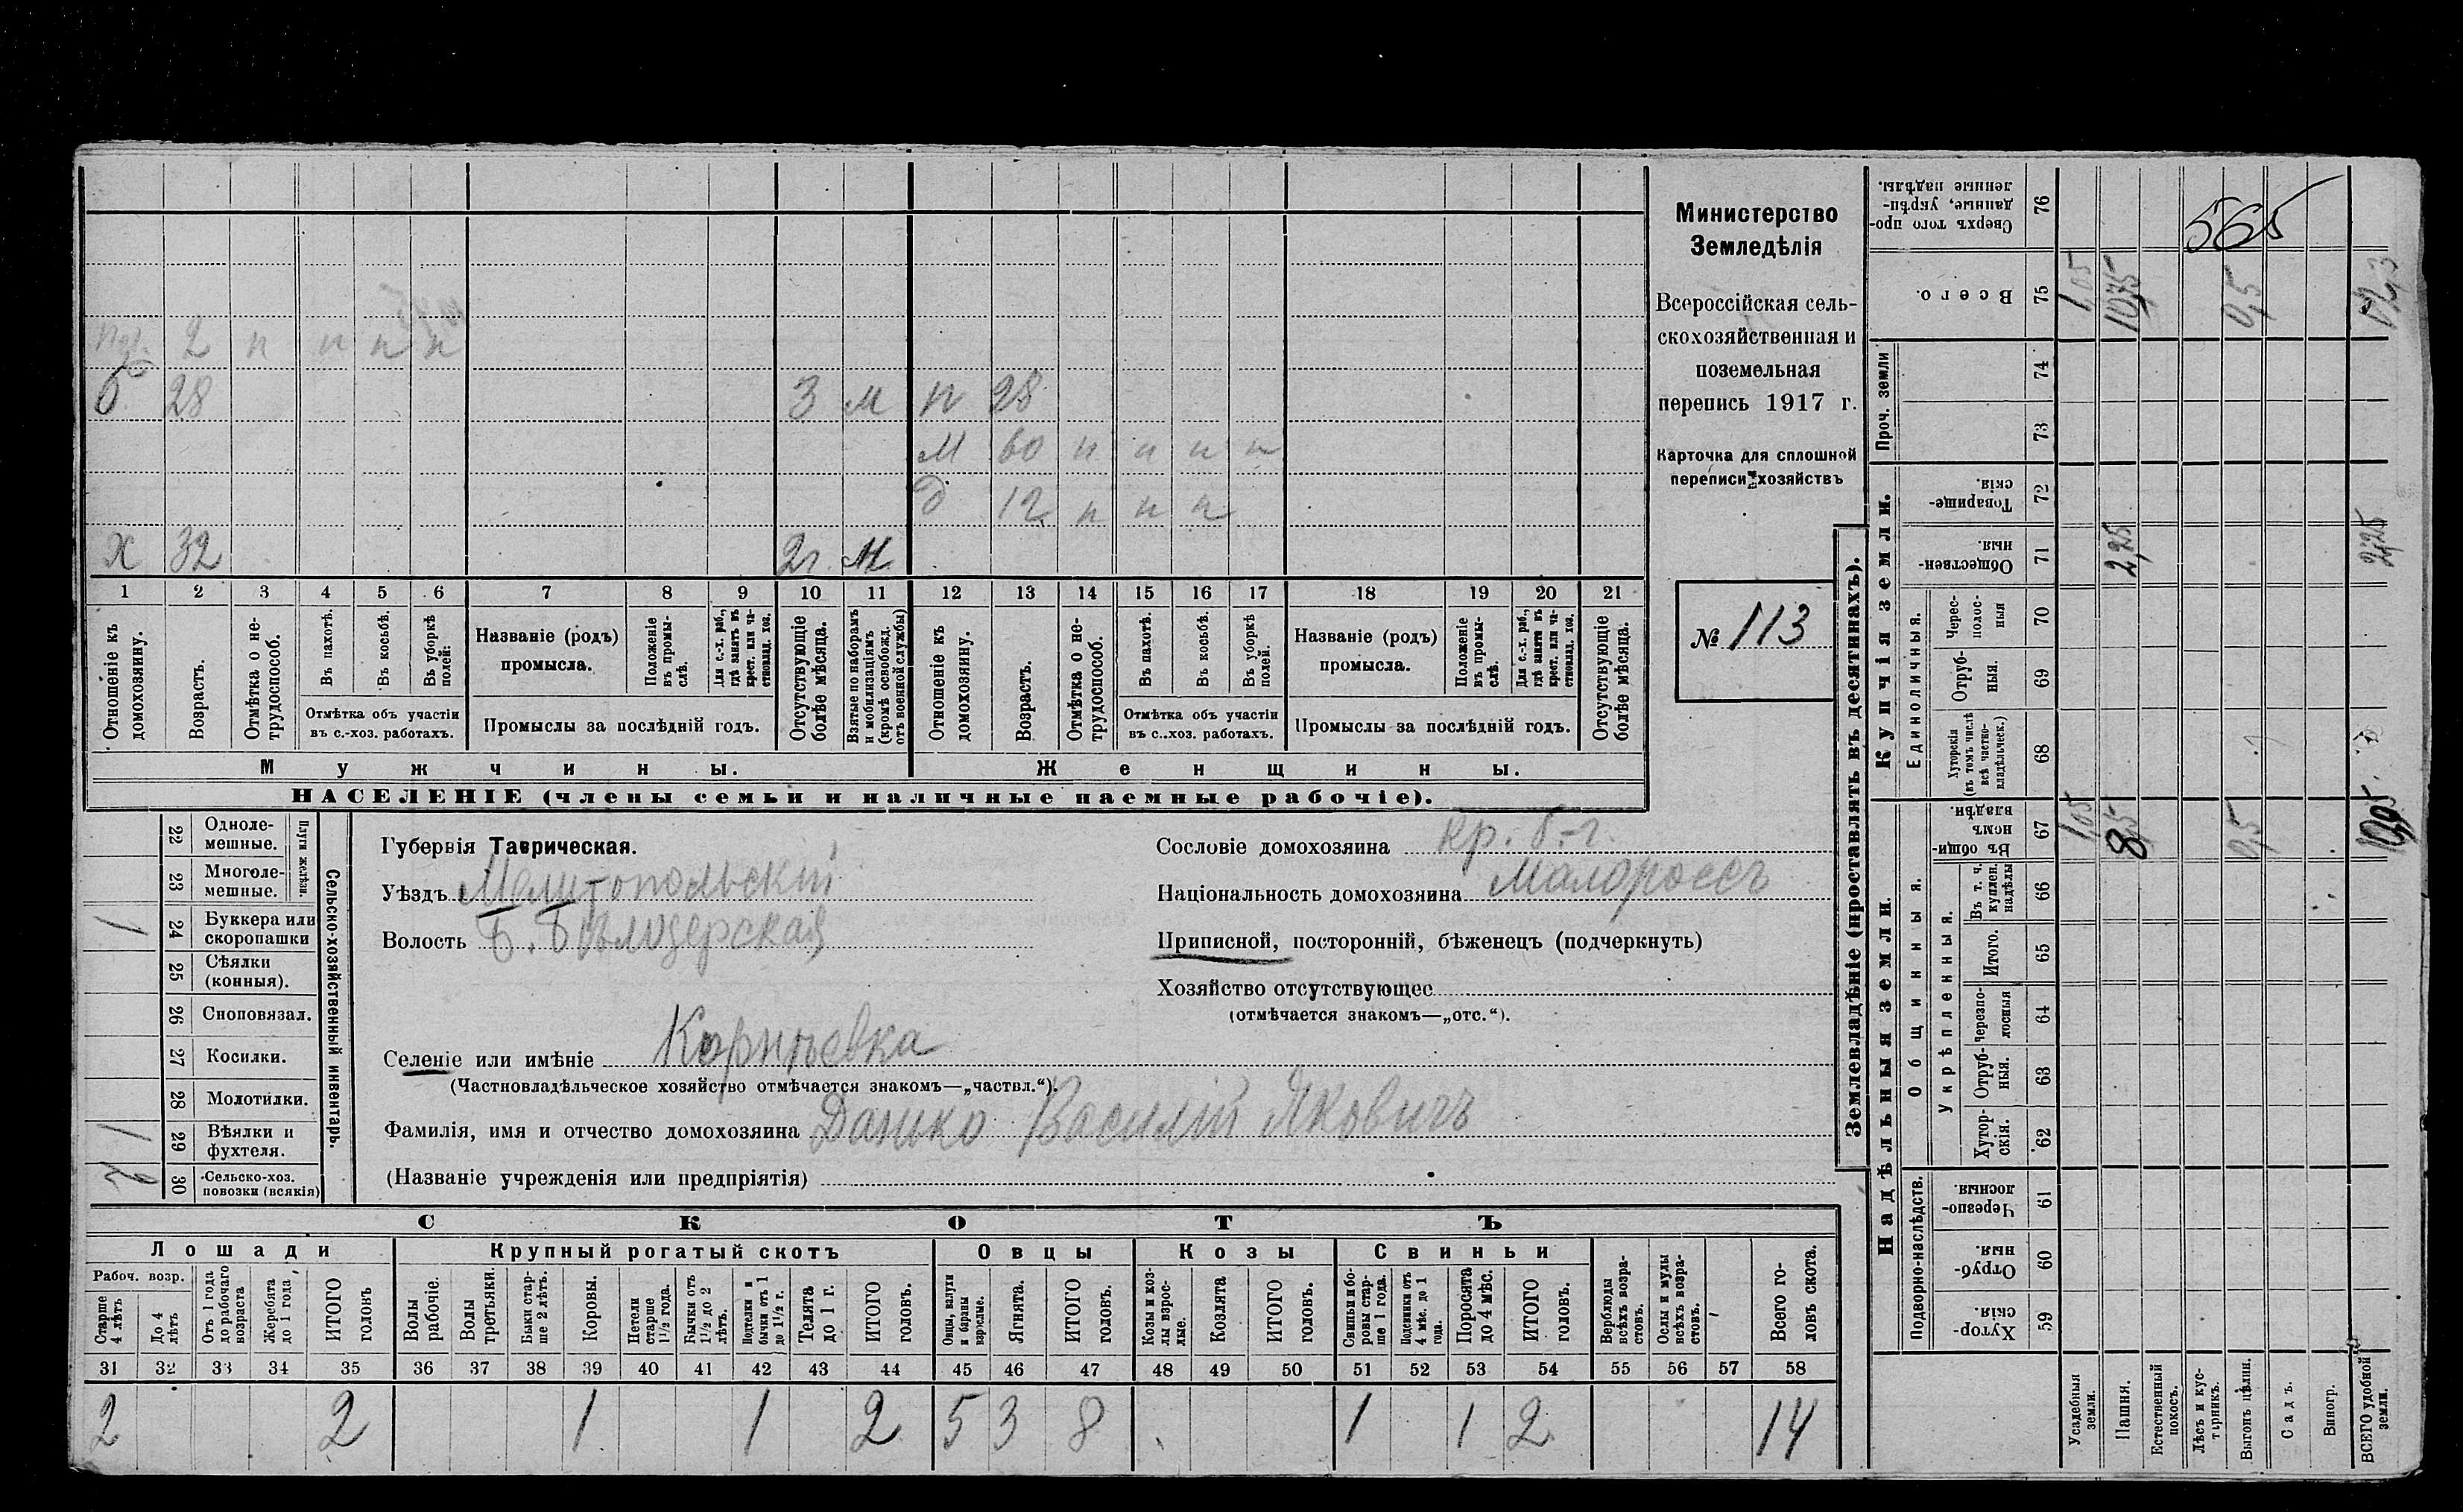 2 п п п п
б 28 3 м п 28
м 60 п п п п
д 12 п п п
х 32 2 г. м
1 2 3 4 5 6 7 8 9 10 11 12 13 14 15 16 17 18 19 20 21
Отношеніе къ домохозяину.
Возрастъ.
Отмѣтка о не-
трудоспособ.
Въ пахотѣ.
Въ косьбѣ.
Въ уборкѣ
полей:
Отмѣтка объ участіи
въ с.-хоз. работахъ.
Названіе (родъ)
промысла.
Положеніе
въ промы-
слѣ.
Для с.-х. раб.,
гдѣ занятъ въ
крест. или ча-
стновлад. хоз.
Промыслы за послѣдній годъ.
Отсутствующіе
болѣе мѣсяца.
Взятые по наборамъ
и мобилизаціямъ
(кромѣ освобожд.
отъ военной службы)
Отношеніе къ
домохозяину.
Возрастъ.
Отмѣтка о не-
трудоспособ.
Въ пахотѣ.
Въ косьбѣ.
Въ уборкѣ
полей.
Отмѣтка объ участіи
въ с.-хоз. работахъ.
Названіе (родъ)
промысла.
Положеніе
въ промы-
слѣ.
Для с.-х. раб.,
гдѣ занятъ въ
крест. или ча-
стновлад. хоз.
Промыслы за послѣдній годъ.
Отсутствующіе
болѣе мѣсяца.
Мужчины.
Женщины.
НАСЕЛЕНІЕ (члены семьи и наличные наемные рабочіе).
Министерство
Земледѣлія
Всероссійская сель-
скохозяйственная и
поземельная
перепись 1917 г.
Карточка для сплошной
переписи хозяйствъ
№ 113
Плуги желѣзн.
22 Одноле-
мешные.
23 Многоле-
мешные.
1 24 Буккера или
скоропашки
25 Сѣялки
(конныя).
26 Сноповязал.
27 Косилки.
28 Молотилки.
1 29 Вѣялки и
фухтеля.
30 Сельско-хоз.
повозки (всякія)
Сельско-хозяйственный инвентарь.
Губернія Таврическая.
Уѣздъ Мелитопольскій
Волость Б. Бѣлозерская
Селеніе или имѣніе Корнѣевка
(Частновладѣльческое хозяйство отмѣчается знакомъ—„частвл.“).
Фамилія, имя и отчество домохозяина Дашко Василій Яковичъ
(Названіе учрежденія или предпріятія)
Сословіе домохозяина кр. б.-г.
Національность домохозяина Малороссъ
Приписной, посторонній, бѣженецъ (подчеркнуть)
Хозяйство отсутствующее
(отмѣчается знакомъ—„отс.“).
СКОТЪ
Лошади
Крупный рогатый скотъ
Овцы
Козы
Свиньи
Рабоч. возр.
Старше
4 лѣтъ
До 4
лѣтъ
Отъ 1 года
до рабочаго
возраста
Жеребята
до 1 года
ИТОГО
головъ
Волы
рабочіе.
Волы
третьяки.
Быки стар-
ше 2 лѣтъ.
Коровы.
Нетели
старше
1½ года.
Бычки отъ
1½ до 2
лѣтъ.
Подтелки и
бычки отъ 1
до 1½ г.
Телята
до 1 г.
ИТОГО
головъ.
Овцы, валухи
и бараны
взрослые.
Ягнята.
ИТОГО
головъ.
Козы и коз-
лы взрос-
лые.
Козлята
ИТОГО
головъ.
Свиньи и бо-
ровы стар-
ше 1 года.
Подсвинки отъ
4 мѣс. до 1
года.
Поросята
до 4 мѣс.
ИТОГО
головъ.
Верблюды
всѣхъ возра-
стовъ.
Ослы и мулы
всѣхъ возра-
стовъ.
Всего го-
ловъ скота.
31 32 33 34 35 36 37 38 39 40 41 42 43 44 45 46 47 48 49 50 51 52 53 54 55 56 57 58
2 2 1 1 2 5 3 8 1 1 2 14
Землевладѣніе (проставлять въ десятинахъ).
Надѣльныя земли.
Купчія земли.
Проч. земли
Подворно-наслѣдств.
Общинныя.
Укрѣпленныя.
Единоличныя.
Сверхъ того про-
данные, укрѣп-
ленные надѣлы.
76
565
Всего.
75 1,05 10,75 0,5
74
73
Товарище-
скія.
72
Обществен-
ныя.
71 2,25 2,25
Черес-
полос-
ныя
70
Отруб-
ныя.
69
Хуторскія
(въ томъ числѣ
всѣ частно-
владѣльческ.)
68
Въ общин-
номъ
владѣн.
67 1,05 8,5 0,5
Въ т. ч.
куплен.
надѣлы
66
Итого.
65
Черезпо-
лосныя
64
Отруб-
ныя.
63
Хутор-
скія.
62
Черезпо-
лосныя.
61
Отруб-
ныя.
60
Хутор-
скія.
59
Усадебныя
земли.
Пашня.
Естественный
покосъ.
Лѣсъ и кус-
тарникъ.
Выгонъ цѣлин.
Садъ.
Виногр.
ВСЕГО удобной
земли.